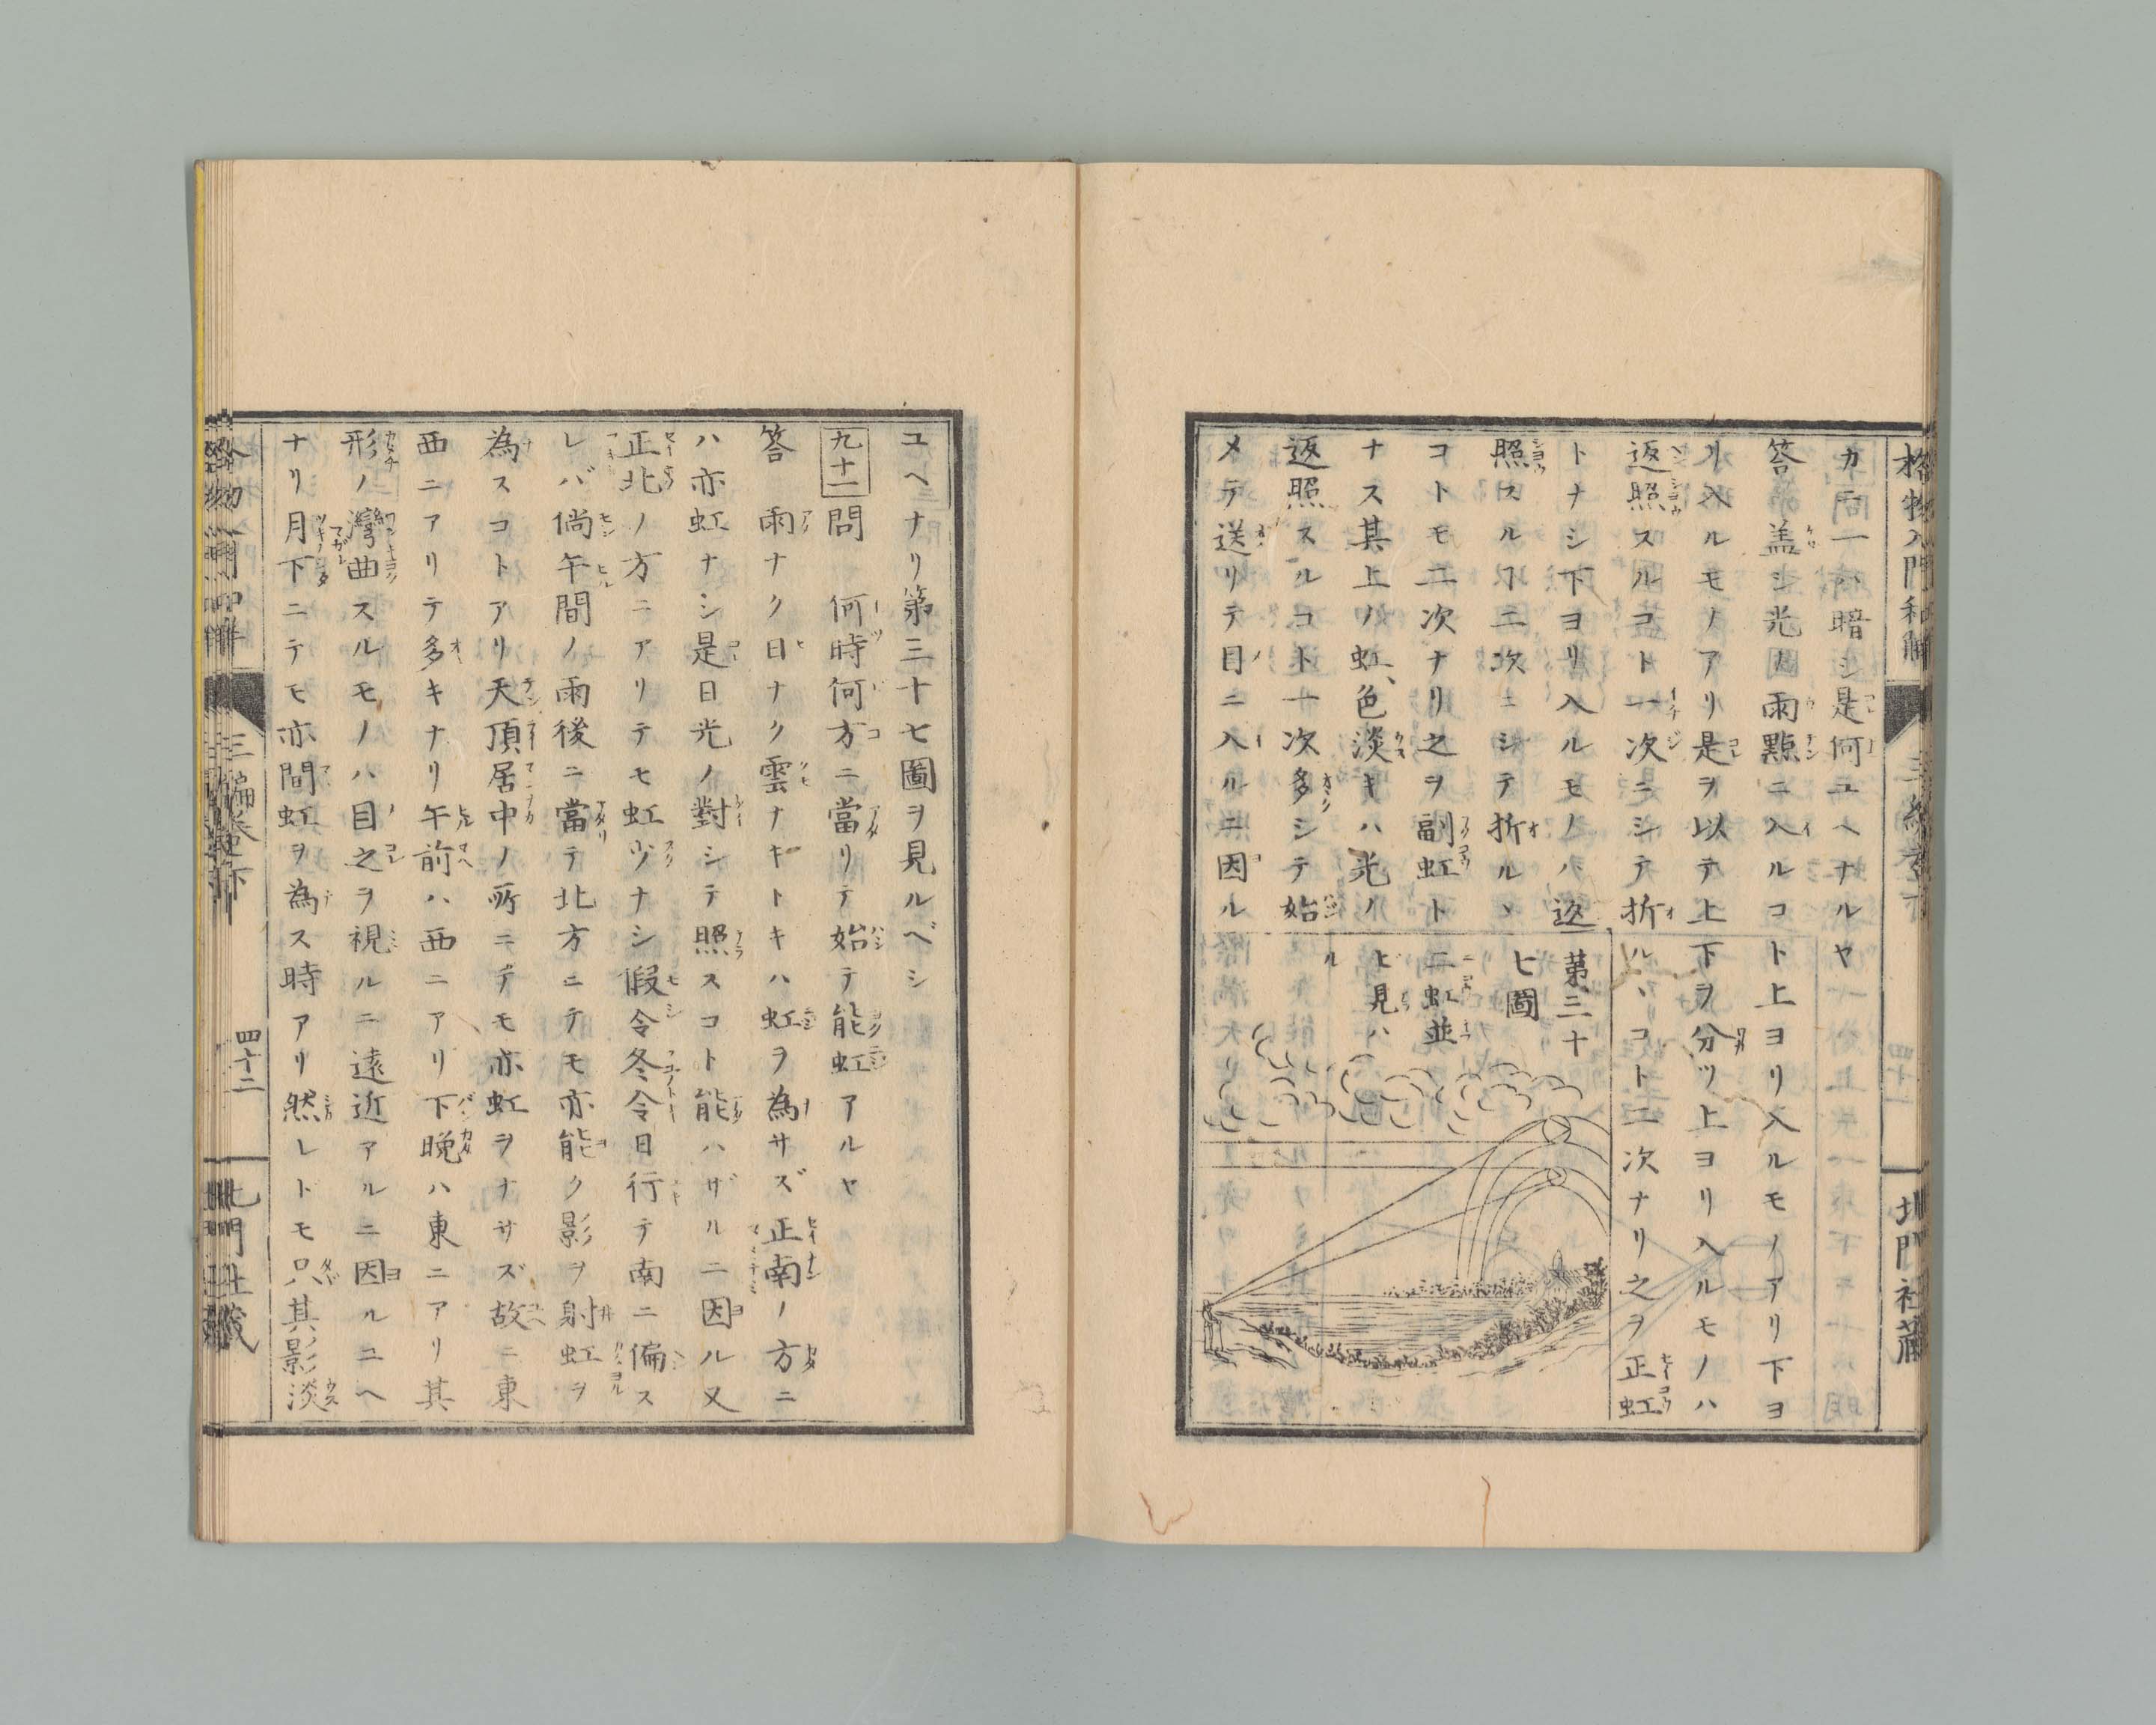 格物入門和解
北門社蔵
カニ一ハ暗シ是何ユヘナルヤ
答 盖シ光ノ雨點ニ入ルコト上ヨリ入ルモノアリ下ヨ
リ入ルモノアリ是ヲ以テ上下ヲ分ツ上ヨリ入ルモノハ
返照スルコト一次ニシテ折ルヽコト二次ナリ之ヲ正虹
トナシ下ヨリ入ルモノハ返
照スルヿ二次ニシテ折ルヽ
コトモ二次ナリ之ヲ副虹ト
ナス其上ノ虹、色淡キハ光ノ
返照スルコト一次多シテ始
メテ送リテ目ニ入ルニ因ル
第三十
七圖
二虹並
ビ見ハ
ル
ユヘナリ第三十七圖ヲ見ルベシ
九十二問 何時何方ニ當リテ始テ能虹アルヤ
答 雨ナク日ナク雲ナキトキハ虹ヲ為サズ正南ノ方ニ
ハ亦虹ナシ是日光ノ對シテ照スコト能ハザルニ因ル又
正北ノ方ニアリテモ虹少ナシ假令冬令日行テ南ニ偏ス
レバ倘午間ノ雨後ニ當テ北方ニテモ亦能ク影ヲ射虹ヲ
為スコトアリ天頂居中ノ所ニテモ亦虹ヲナサズ故ニ東
西ニアリテ多キナリ午前ハ西ニアリ下晩ハ東ニアリ其
形ノ灣曲スルモノハ目之ヲ視ルニ遠近アルニ因ルユヘ
ナリ月下ニテモ亦間虹ヲ為ス時アリ然レトモ只其影淡
三編巻下
四十二
北門社蔵